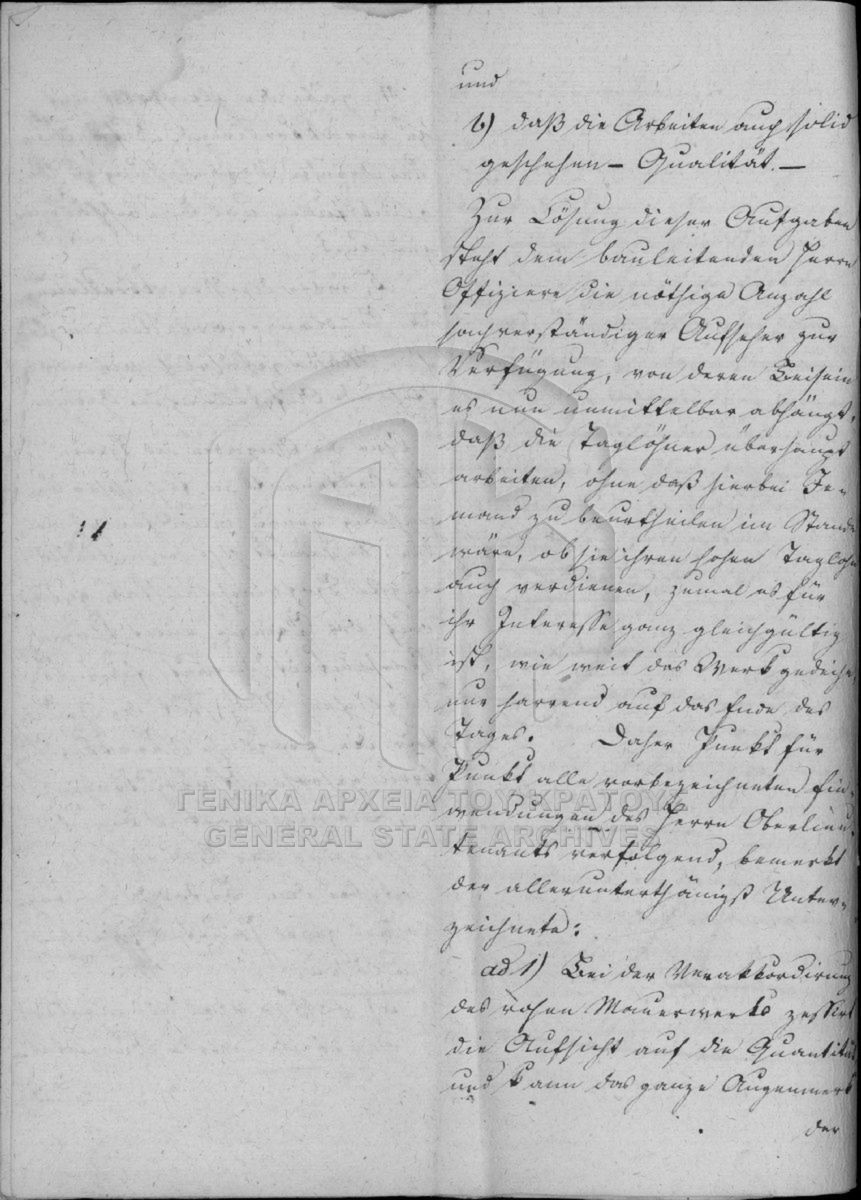 und
b) daß die Arbeiten auch solid
geschehen – Qualität. –
Zur Lösung dieser Aufgaben
steht dem bauleitenden Herrn
Offiziere die nöthige Anzahl
sachverständiger Aufseher zur
Verfügung, von deren Beisein
es nun unmittelbar abhängt,
daß die Taglöhner überhaupt
arbeiten, ohne daß hierbei Je-
mand zu beurtheilen im Stande
wäre, ob sie ihren hohen Taglohn
auch verdienen, zumal es für
ihr Interesse ganz gleichgültig
ist, wie weit das Werk gedeihe,
nur harrend auf das Ende des
Tages. Daher Punkt für
Punkt alle vorbezeichneten Ein-
wendungen des Herrn Oberlieu-
tenants verfolgend, bemerkt
der allerunterthänigst Unter-
zeichnete:
ad 1) Bei der Verakkordirung
des rohen Mauerwerks zessirt
die Aufsicht auf die Quantität
und kann das ganze Augenmerk
der
ΓΕΝΙΚΑ ΑΡΧΕΙΑ ΤΟΥ ΚΡΑΤΟΥΣ
GENERAL STATE ARCHIVES